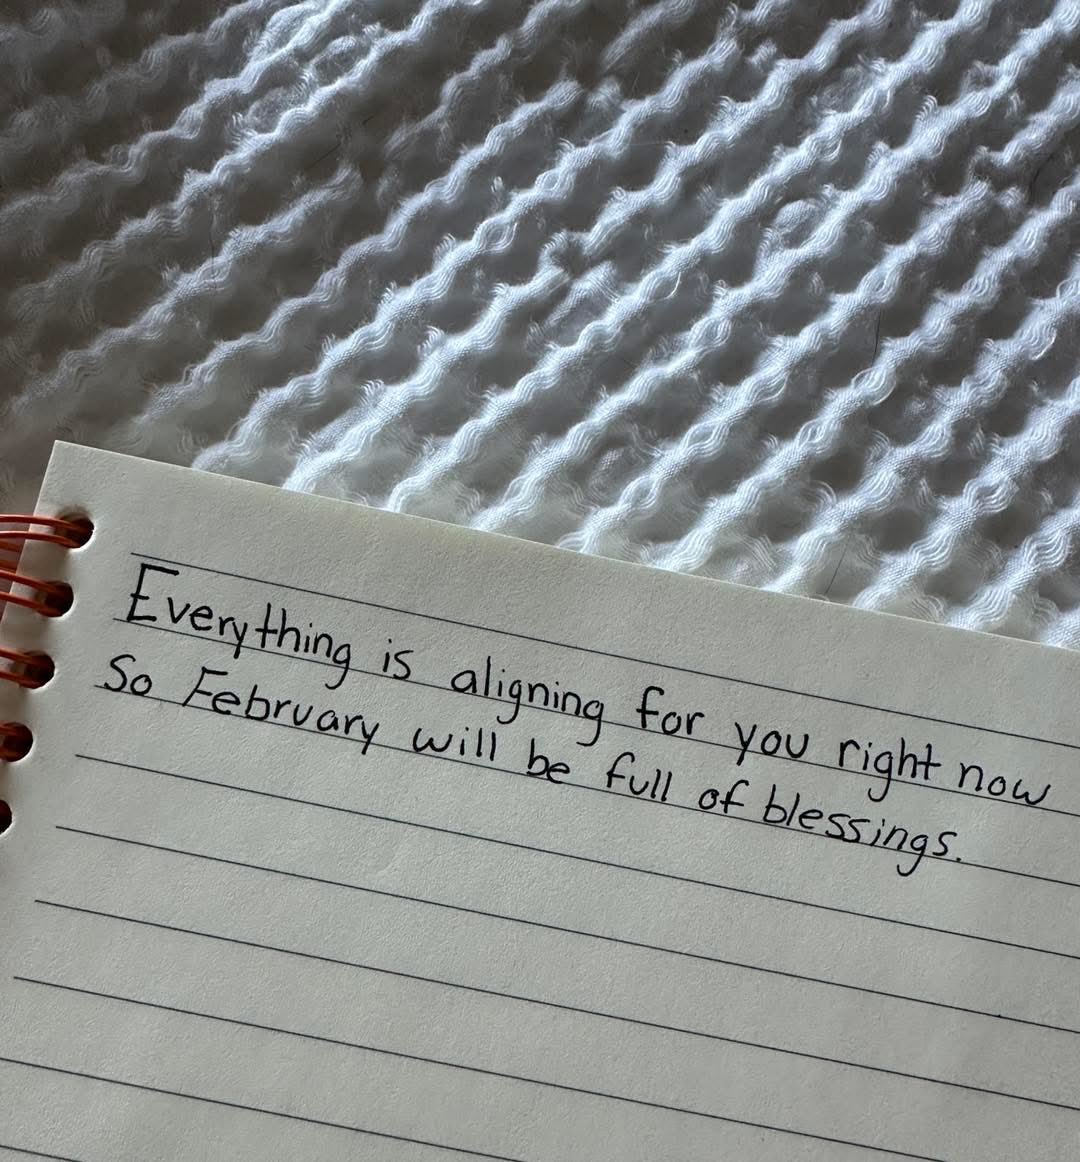 Everything is aligning for you right now
So February will be full of blessings.